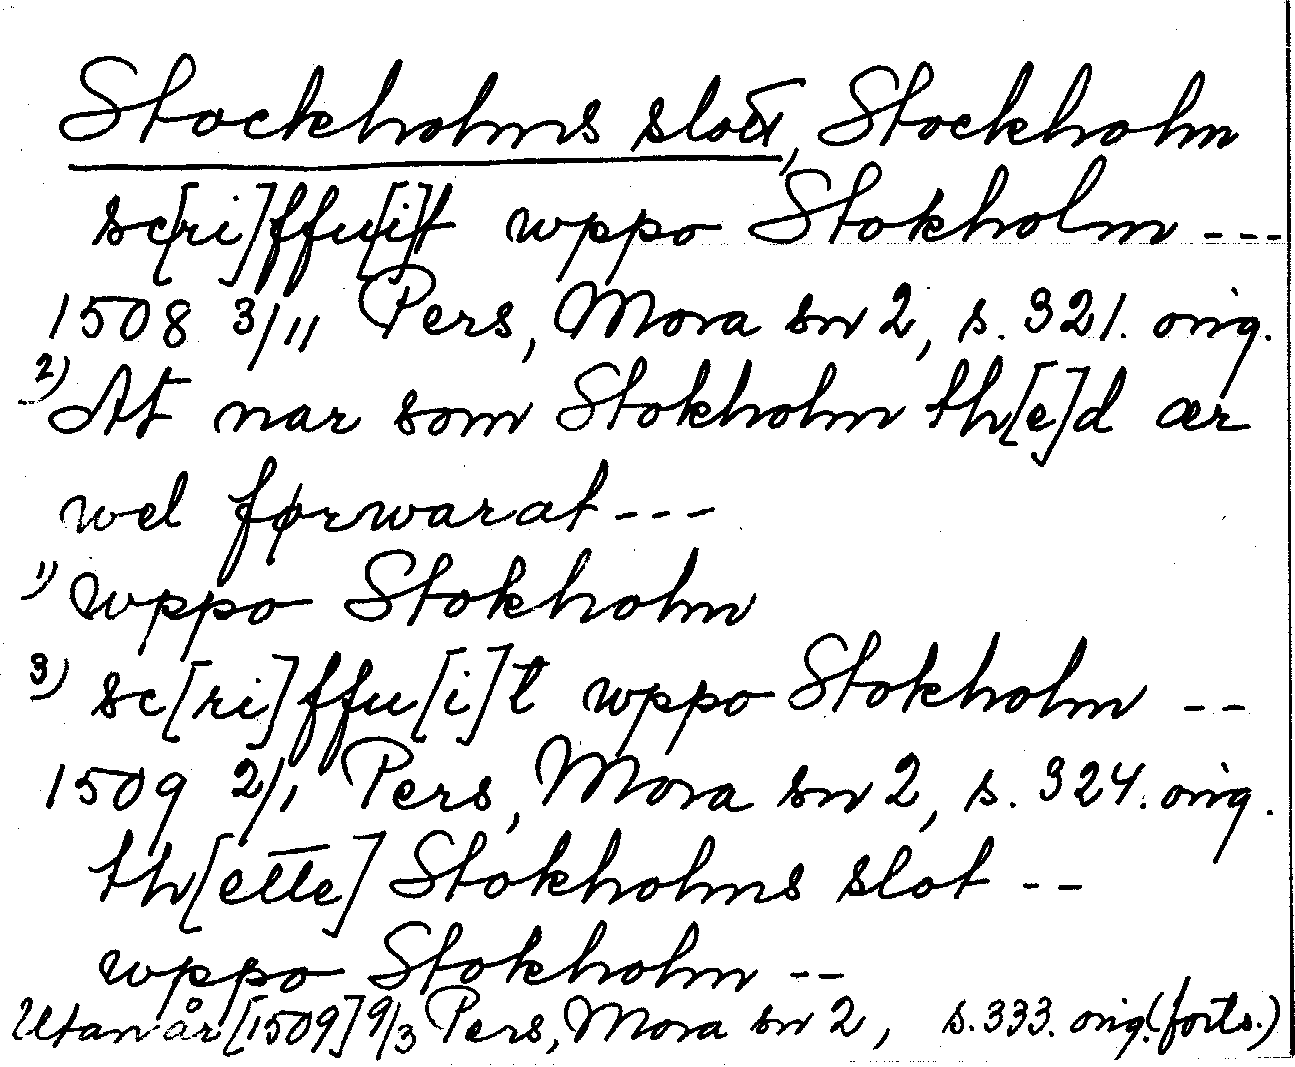 Stockholms slott, Stockholm
sc[ri]ffu[i]t wppo Stokholm ---
1508 3/11 Pers, Mora sn 2, s. 321. orig.
2) At nar som Stokholm th[e]d ær
wel førwarat ---
1) wppo Stokholm
3) sc[ri]ffu[i]t wppo Stokholm --
1509 2/1 Pers, Mora sn 2, s. 324. orig.
th[ette] Stokholms slot --
wppo Stokholm --
Utan år [1509] 9/3 Pers, Mora sn 2, s. 333. orig. (forts.)